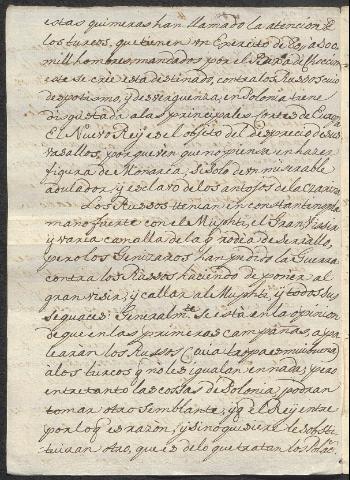 estas quimeras han llamado la atencion de
los turcos, que tienen un Exercito de
mil hombres mandados por el
este se cree esta destinado, contra los Russos cuio
despotismo, y desverguenza, en Polonia tiene
disgustada a las principales Cortes de Europa
El Nuevo Rey es el objeto del desprecio de sus
vasallos, porque ven que no piensa en hazer
figura de Monarca, si solo de un miserable
adulador, y esclavo de los antojos de la Czarina
Los Russos tenian en Constantinopla
mano fuerte con el Muphti, el Gran Visir
y varia canalla de la q rodea el serrallo,
pero los Genizaros han pedido la Guerra
contra los Russos haciendo deponer al
gran visir, y callar al Muphti, y todos sus
sequaces: Generalmte. se està en la opinion
de que en las primeras campañas, apa
learàn los Russos (cuia tropa es mui buena)
à los turcos q no les igualan en nada; pero
entretanto las cossas de Polonia, podran
tomar otro semblante, y q el Rey entre
por lo q es razon, y sino quisiere le substi
tuiran otro, que es de lo que tratan los Polac.